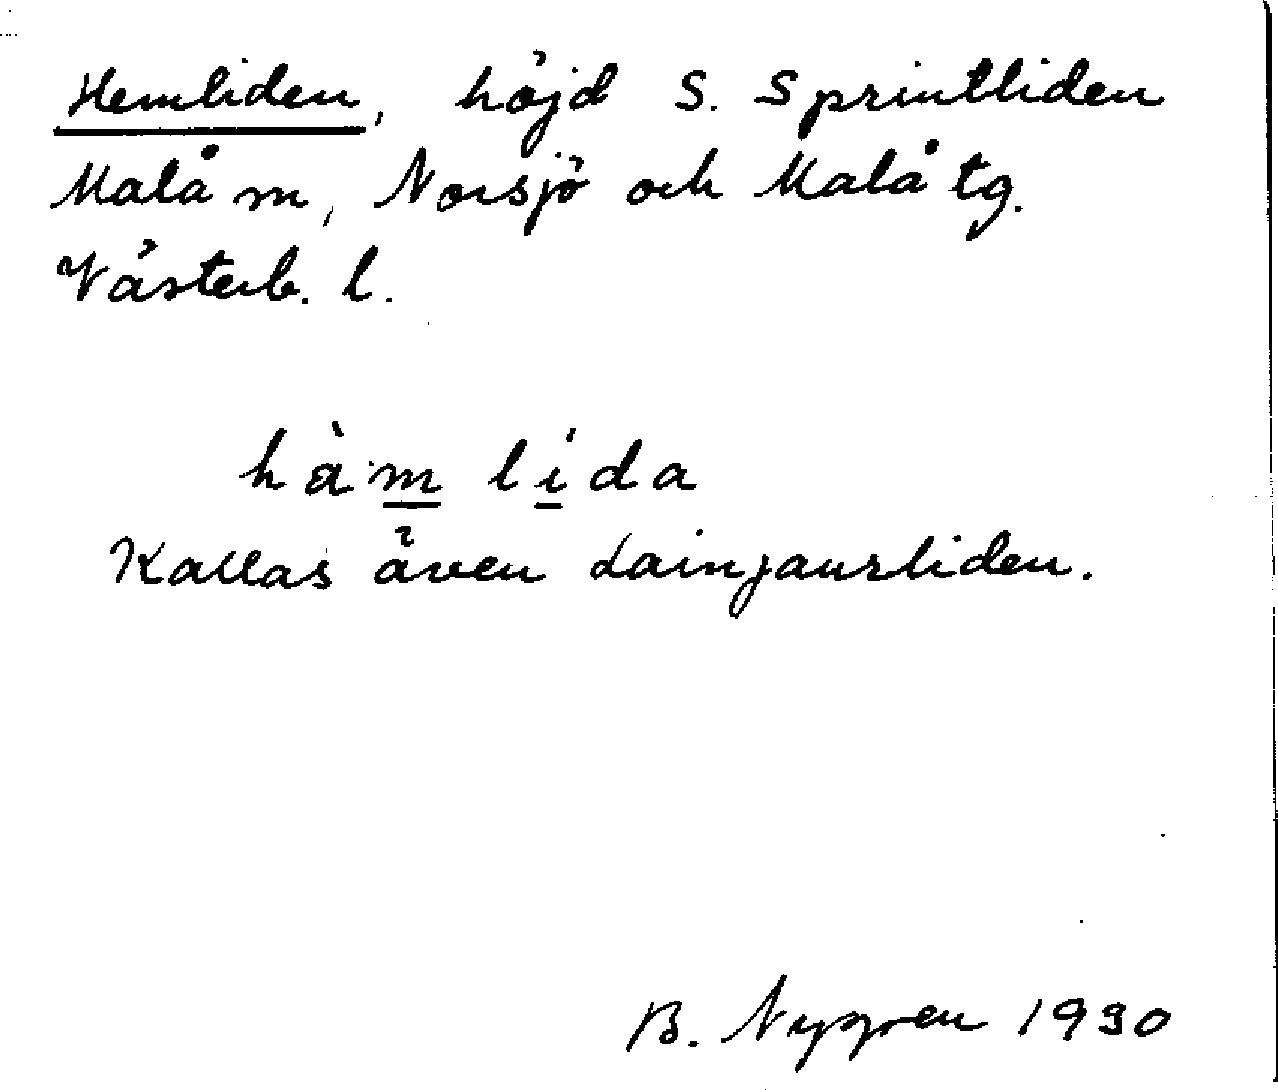 Hemliden, höjd S. Sprintliden
Malå m, Norsjö och Malå tg.
Västerb. l.
hàm lída
Kallas även Lainjaursliden.
B. Nygren 1930